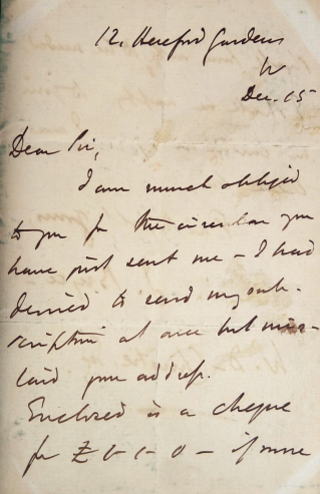 12. Hereford Gardens
W
Dec. 15
Dear Sir,
I am much obliged
to you for the circular you
have just sent me – I had
desired to send my sub-
scription at once but mis-
laid your address.
Enclosed is a cheque
for £ – – – if more